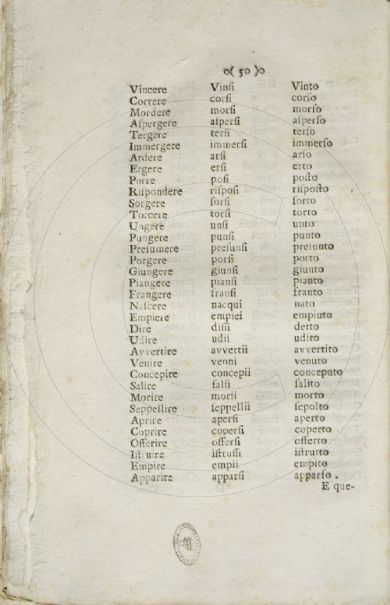 o( 50 )o
Vincere Vinſi Vinto
Correre corſi corſo
Mordere morſi morſo
Aſpergere aſperſi aſperſo
Tergere terſi terſo
Immergere immerſi immerſo
Ardere arſi arſo
Ergere erſi erto
Porre poſi poſto
Riſpondere riſpoſi riſpoſto
Sorgere ſorſi ſorto
Torcere torſi torto
Ungere unſi unto
Pungere punſi punto
Preſumere preſunſi preſunto
Porgere porſi porto
Giungere giunſi giunto
Piangere pianſi pianto
Frangere franſi franto
Naſcere nacqui nato
Empiere empiei empiuto
Dire diſſi detto
Udire udii udito
Avvertire avvertii avvertito
Venire venni venuto
Concepire concepii conceputo
Salire falſi ſalito
Morire morii morto
Seppellire ſeppellii ſepolto
Aprire aperſi aperto
Coprire coperſi coperto
Offerire offerſi offerto
Iſtruire iſtruſſi iſtrutto
Empire empii empito
Apparire apparſi apparſo .
E que-